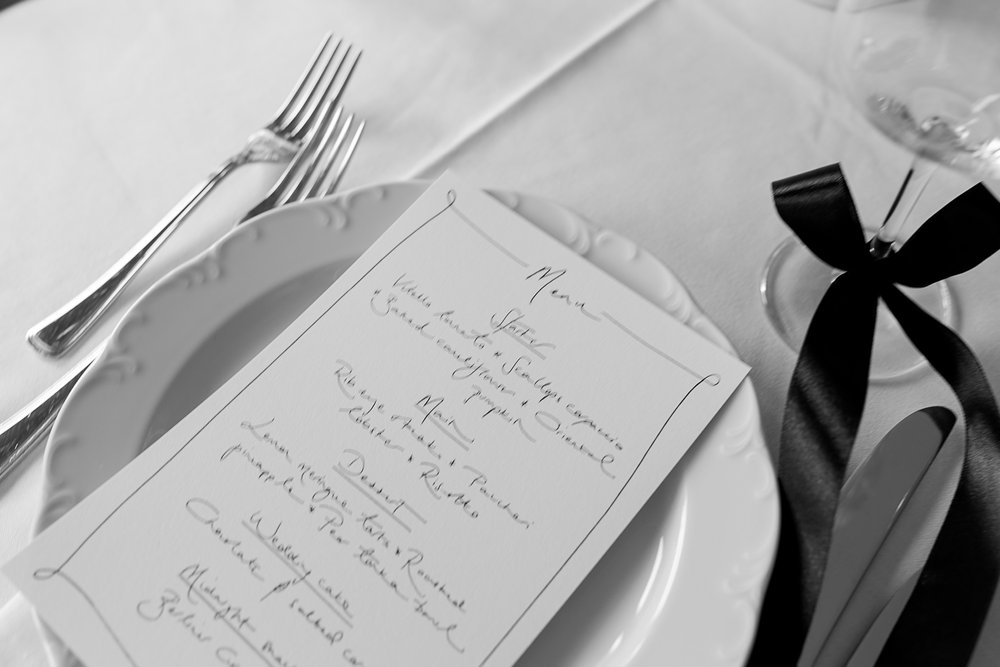 Menu
Starter
Vitello tonnato * Scallops carpaccio
* Baked cauliflower * Oriental
pumpkin
Main
Rib eye steak * Paccheri
lobster * Risotto
Dessert
Lemon meringue tarte * Roasted
pineapple * Pear tonka
Wedding cake
Chocolate & salted
Midnight
Berliner